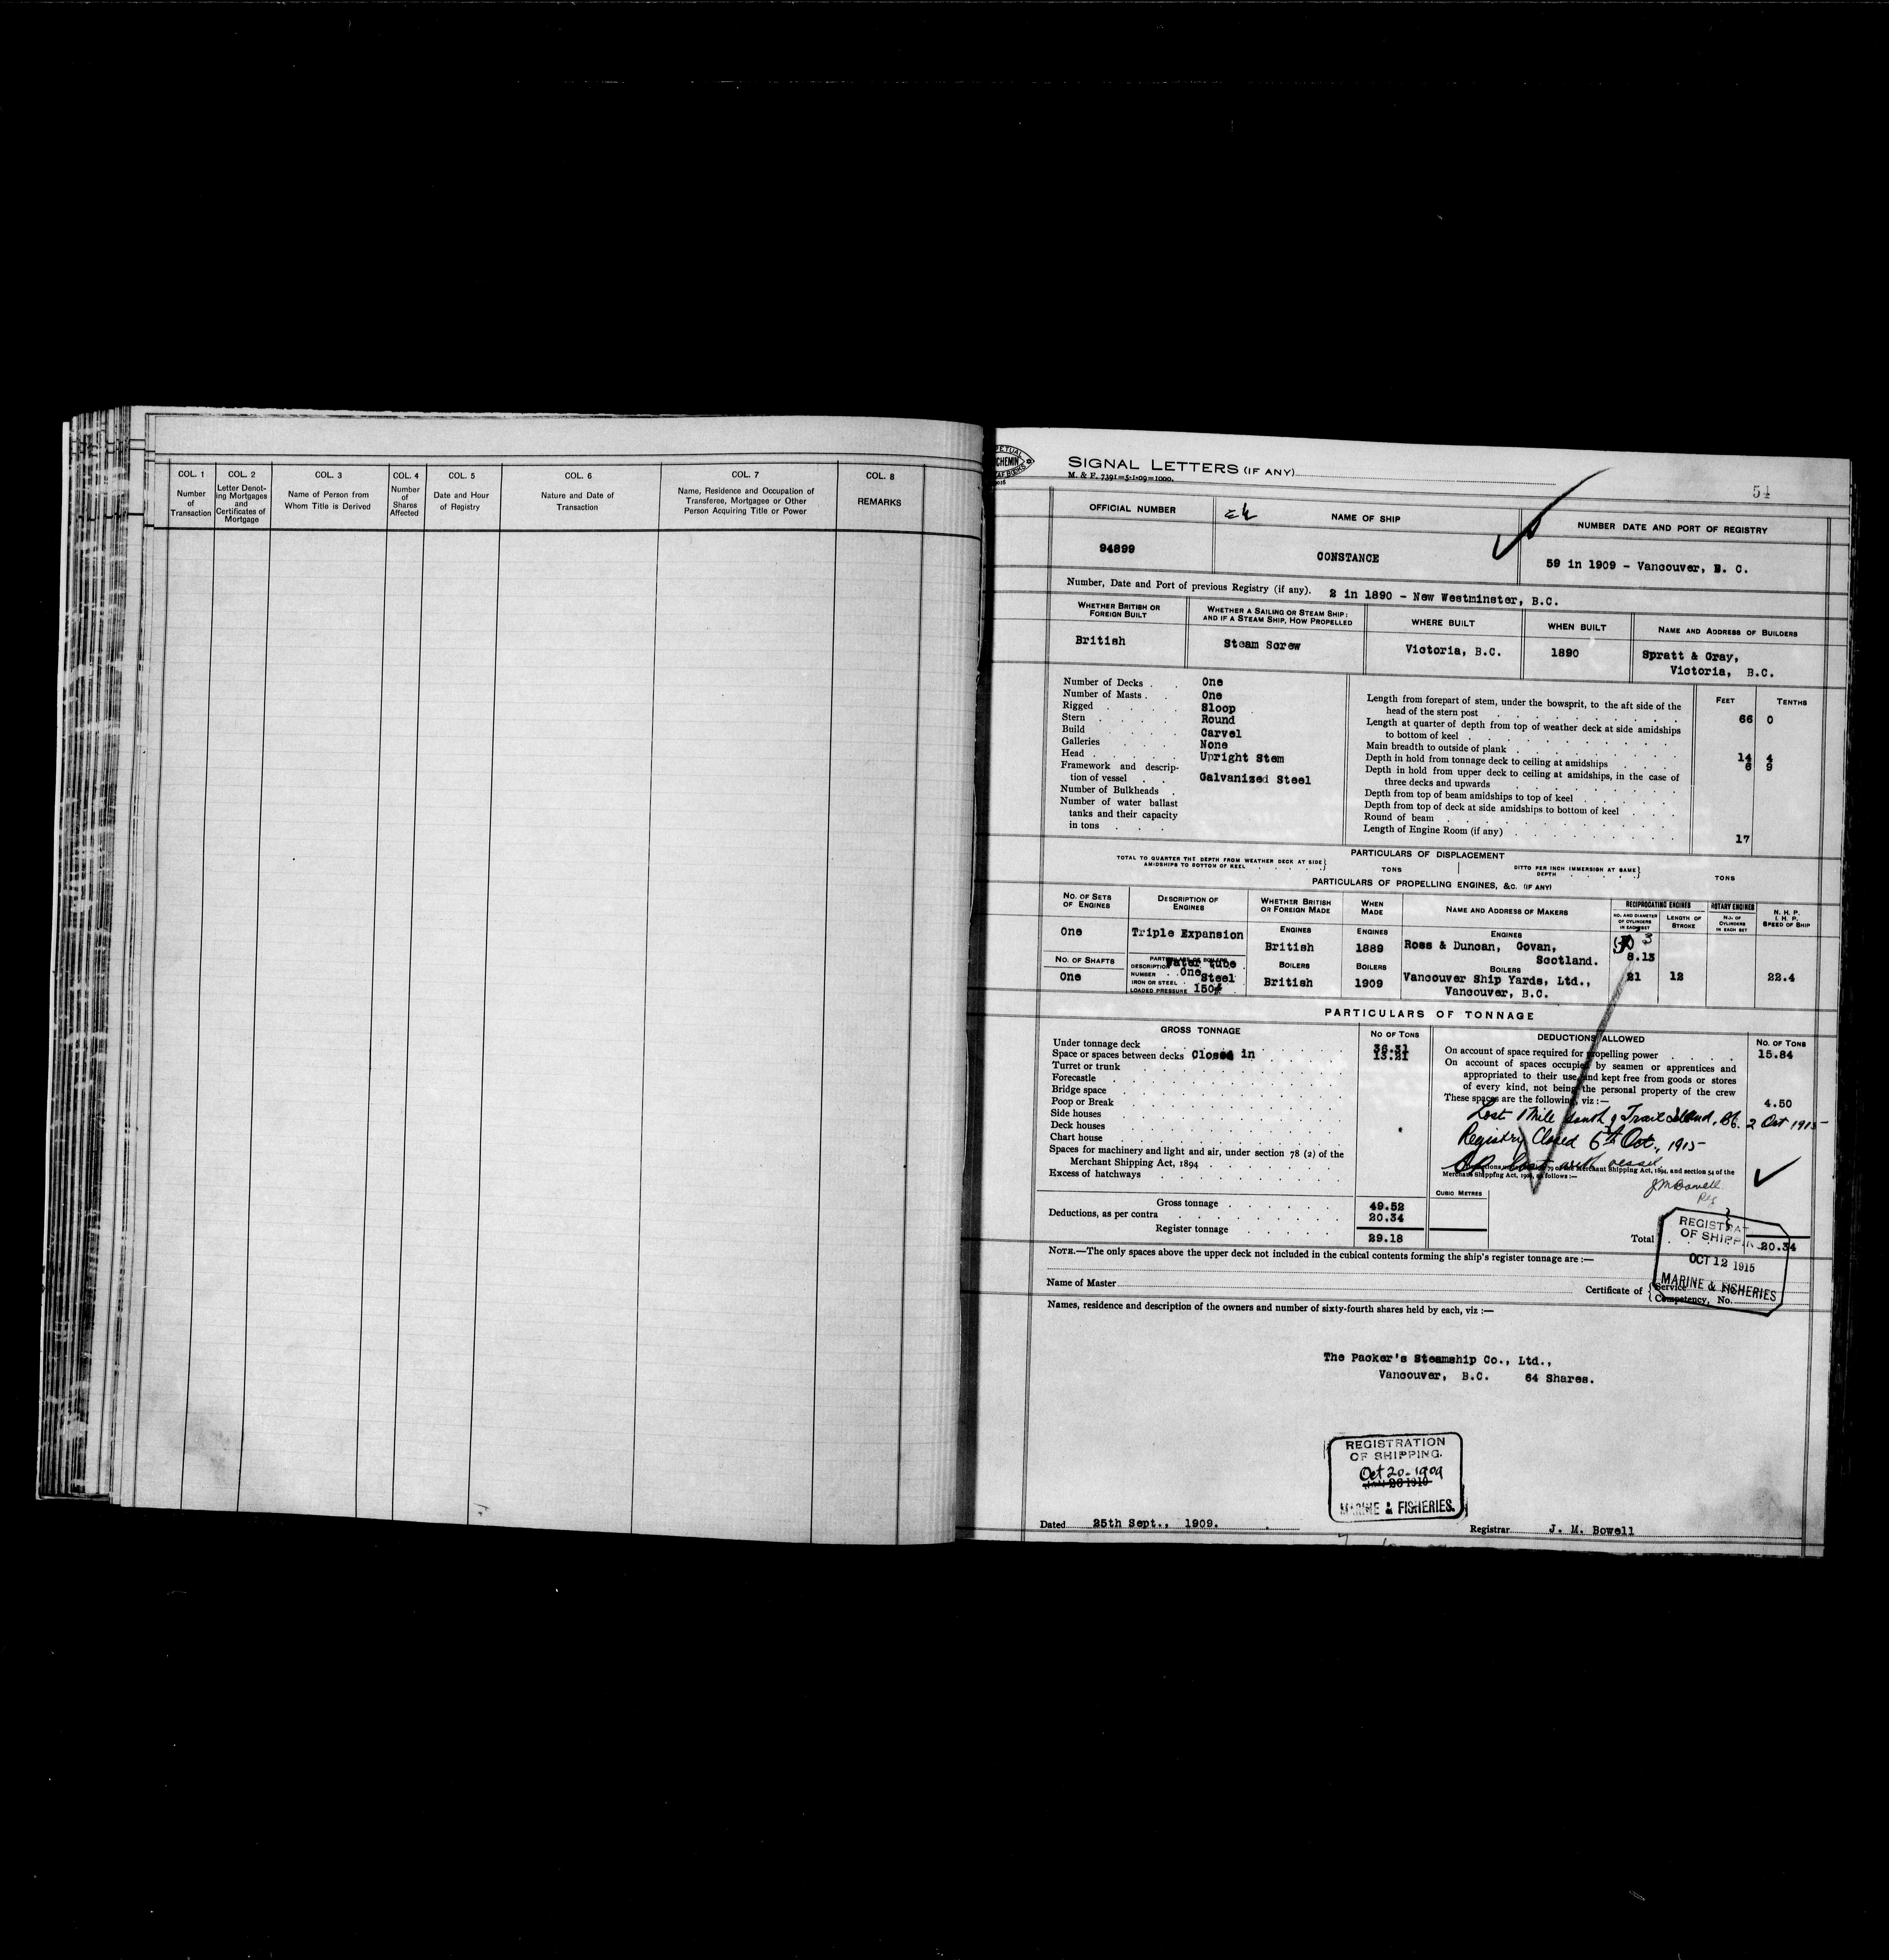 COL. 1
Number
of
Transaction
COL. 2
Letter Denot-
ing Mortgages
and
Certificates of
Mortgage
COL. 3
Name of Person from
Whom Title is Derived
COL. 4
Number
of
Shares
Affected
COL. 5
Date and Hour
of Registry
COL. 6
Nature and Date of
Transaction
COL. 7
Name, Residence and Occupation of
Transferee, Mortgagee or Other
Person Acquiring Title or Power
COL. 8
REMARKS
SIGNAL LETTERS (IF ANY)
M. & F. 7391=5-1-09=1000.
54
OFFICIAL NUMBER
NAME OF SHIP
NUMBER DATE AND PORT OF REGISTRY
94899
CONSTANCE
59 in 1909 - Vancouver, B. C.
Number, Date and Port of previous Registry (if any). 2 in 1890 - New Westminster, B.C.
WHETHER BRITISH OR
FOREIGN BUILT
WHETHER A SAILING OR STEAM SHIP;
AND IF A STEAM SHIP, HOW PROPELLED
WHERE BUILT
WHEN BUILT
NAME AND ADDRESS OF BUILDERS
British
Steam Screw
Victoria, B.C.
1890
Spratt & Gray,
Victoria, B.C.
Number of Decks One
Number of Masts One
Rigged Sloop
Stern Round
Build Carvel
Galleries None
Head Upright Stem
Framework and descrip-
tion of vessel Galvanized Steel
Number of Bulkheads
Number of water ballast
tanks and their capacity
in tons
FEET TENTHS
Length from forepart of stem, under the bowsprit, to the aft side of the
head of the stern post 66 0
Length at quarter of depth from top of weather deck at side amidships
to bottom of keel
Main breadth to outside of plank 14 4
Depth in hold from tonnage deck to ceiling at amidships 6 9
Depth in hold from upper deck to ceiling at amidships, in the case of
three decks and upwards
Depth from top of beam amidships to top of keel
Depth from top of deck at side amidships to bottom of keel
Round of beam
Length of Engine Room (if any) 17
PARTICULARS OF DISPLACEMENT
TOTAL TO QUARTER THE DEPTH FROM WEATHER DECK AT SIDE
AMIDSHIPS TO BOTTOM OF KEEL
TONS
DITTO PER INCH IMMERSION AT SAME
DEPTH
TONS
PARTICULARS OF PROPELLING ENGINES, &C. (IF ANY)
NO. OF SETS
OF ENGINES
DESCRIPTION OF
ENGINES
WHETHER BRITISH
OR FOREIGN MADE
WHEN
MADE
NAME AND ADDRESS OF MAKERS
RECIPROCATING ENGINES
NO. AND DIAMETER
OF CYLINDERS
IN EACH SET
LENGTH OF
STROKE
ROTARY ENGINES
NO. OF
CYLINDERS
IN EACH SET
N. H. P.
I. H. P.
SPEED OF SHIP
One
Triple Expansion
ENGINES
British
ENGINES
1889
ENGINES
Ross & Duncan, Govan,
Scotland.
3
8.13
NO. OF SHAFTS
One
PARTICULARS OF BOILERS
DESCRIPTION Water tube
NUMBER One
IRON OR STEEL Steel
LOADED PRESSURE 150#
BOILERS
British
BOILERS
1909
BOILERS
Vancouver Ship Yards, Ltd.,
Vancouver, B.C.
21
12
22.4
PARTICULARS OF TONNAGE
GROSS TONNAGE
NO OF TONS
Under tonnage deck 36.31
Space or spaces between decks Closed in 13.21
Turret or trunk
Forecastle
Bridge space
Poop or Break
Side houses
Deck houses
Chart house
Spaces for machinery and light and air, under section 78 (2) of the
Merchant Shipping Act, 1894
Excess of hatchways
Gross tonnage 49.52
Deductions, as per contra 20.34
Register tonnage 29.18
DEDUCTIONS ALLOWED
NO. OF TONS
On account of space required for propelling power 15.84
On account of spaces occupied by seamen or apprentices and
appropriated to their use, and kept free from goods or stores
of every kind, not being the personal property of the crew
These spaces are the following, viz :— 4.50
Lost 1 mile south of Trail Island, BC. 2 Oct 1915
Registry Closed 6th Oct., 1915
lost with vessel
Merchant Shipping Act, 1894, and section 54 of the
Merchant Shipping Act, as follows :—
JM Bowell
Reg
CUBIC METRES
Total 20.34
REGISTRAT
OF SHIPPIN
OCT 12 1915
MARINE & FISHERIES
NOTE.—The only spaces above the upper deck not included in the cubical contents forming the ship's register tonnage are :—
Name of Master
Certificate of
Service
Competency, No.
Names, residence and description of the owners and number of sixty-fourth shares held by each, viz :—
The Packer's Steamship Co., Ltd.,
Vancouver, B.C. 64 Shares.
REGISTRATION
OF SHIPPING.
Oct 20-1909
MARINE & FISHERIES.
Dated 25th Sept., 1909.
Registrar J. M. Bowell